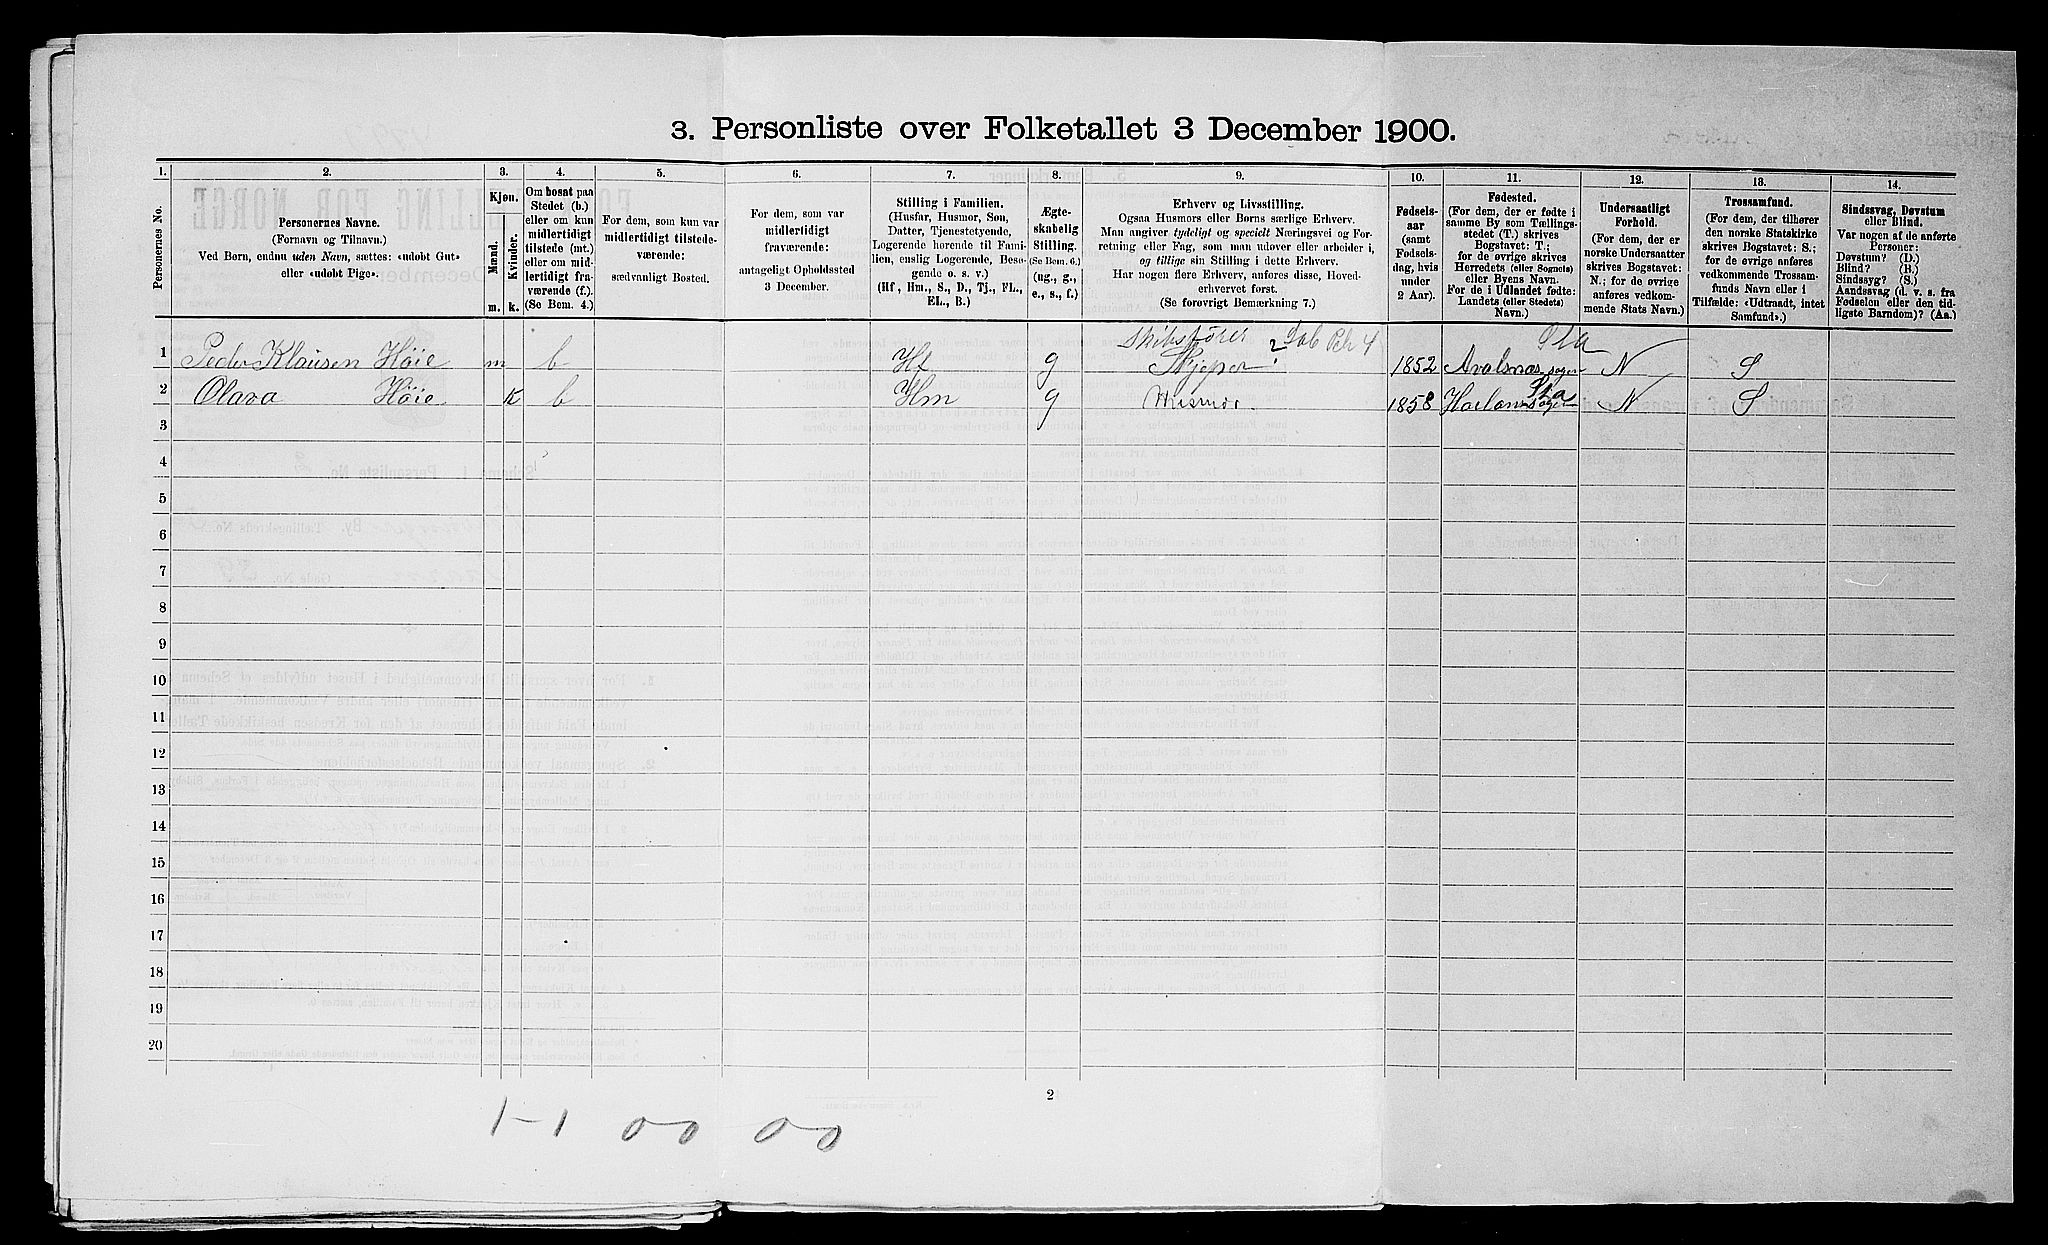 3. Personliste over Folketallet 3 December 1900.
1. 2. 3. 4. 5. 6. 7. 8. 9. 10. 11. 12. 13. 14.
Personernes No.
Personernes Navne.
(Fornavn og Tilnavn.)
Ved Børn, endnu uden Navn, sættes: «udøbt Gut»
eller «udøbt Pige».
Kjøn.
Mænd.
Kvinder.
m. k.
Om bosat paa
Stedet (b.)
eller om kun
midlertidigt
tilstede (mt.)
eller om mid-
lertidigt fra-
værende (f.).
(Se Bem. 4.)
For dem, som kun var
midlertidigt tilstede-
værende:
sædvanligt Bosted.
For dem, som var
midlertidigt
fraværende:
antageligt Opholdssted
3 December.
Stilling i Familien.
(Husfar, Husmor, Søn,
Datter, Tjenestetyende,
Logerende hørende til Fami-
lien, enslig Logerende, Besø-
gende o. s. v.)
(Hf, Hm., S., D., Tj., FL.,
EL., B.)
Ægte-
skabelig
Stilling.
(Se Bem. 6.)
(ug., g.,
e., s., f.)
Erhverv og Livsstilling.
Ogsaa Husmors eller Børns særlige Erhverv.
Man angiver tydeligt og specielt Næringsvei og For-
retning eller Fag, som man udøver eller arbeider i,
og tillige sin Stilling i dette Erhverv.
Har nogen flere Erhverv, anføres disse, Hoved-
erhvervet først.
(Se forøvrigt Bemærkning 7.)
Fødsels-
aar
(samt
Fødsels-
dag, hvis
under
2 Aar).
Fødested.
(For dem, der er fødte i
samme By som Tællings-
stedet (T.) skrives
Bogstavet: T.;
for de øvrige skrives
Herredets (eller Sognets)
eller Byens Navn.
For de i Udlandet fødte:
Landets (eller Stedets)
Navn.)
Undersaatligt
Forhold.
(For dem, der er
norske Undersaatter
skrives Bogstavet:
N.; for de øvrige
anføres vedkom-
mende Stats Navn.)
Trossamfund.
(For dem, der tilhører
den norske Statskirke
skrives Bogstavet: S.;
for de øvrige anføres
vedkommende Trossam-
funds Navn eller i
Tilfælde: «Udtraadt, intet
Samfund».)
Sindssvag, Døvstum
eller Blind.
Var nogen af de anførte
Personer:
Døvstum? (D.)
Blind? (B.)
Sindssyg? (S.)
Aandssvag (d. v. s. fra
Fødselen eller den tid-
ligste Barndom)? (Aa.)
Skibsfører
Sta
1 Peder Klausen Höie m b Hf g Skjeper 1852 Avalsnæs sogn N S
Sta
2 Olava Höie K b Hm g Husmor. 1858 N S
3
4
5
6
7
8
9
10
11
12
13
14
15
16
17
18
19
20
2
1-1 00 00